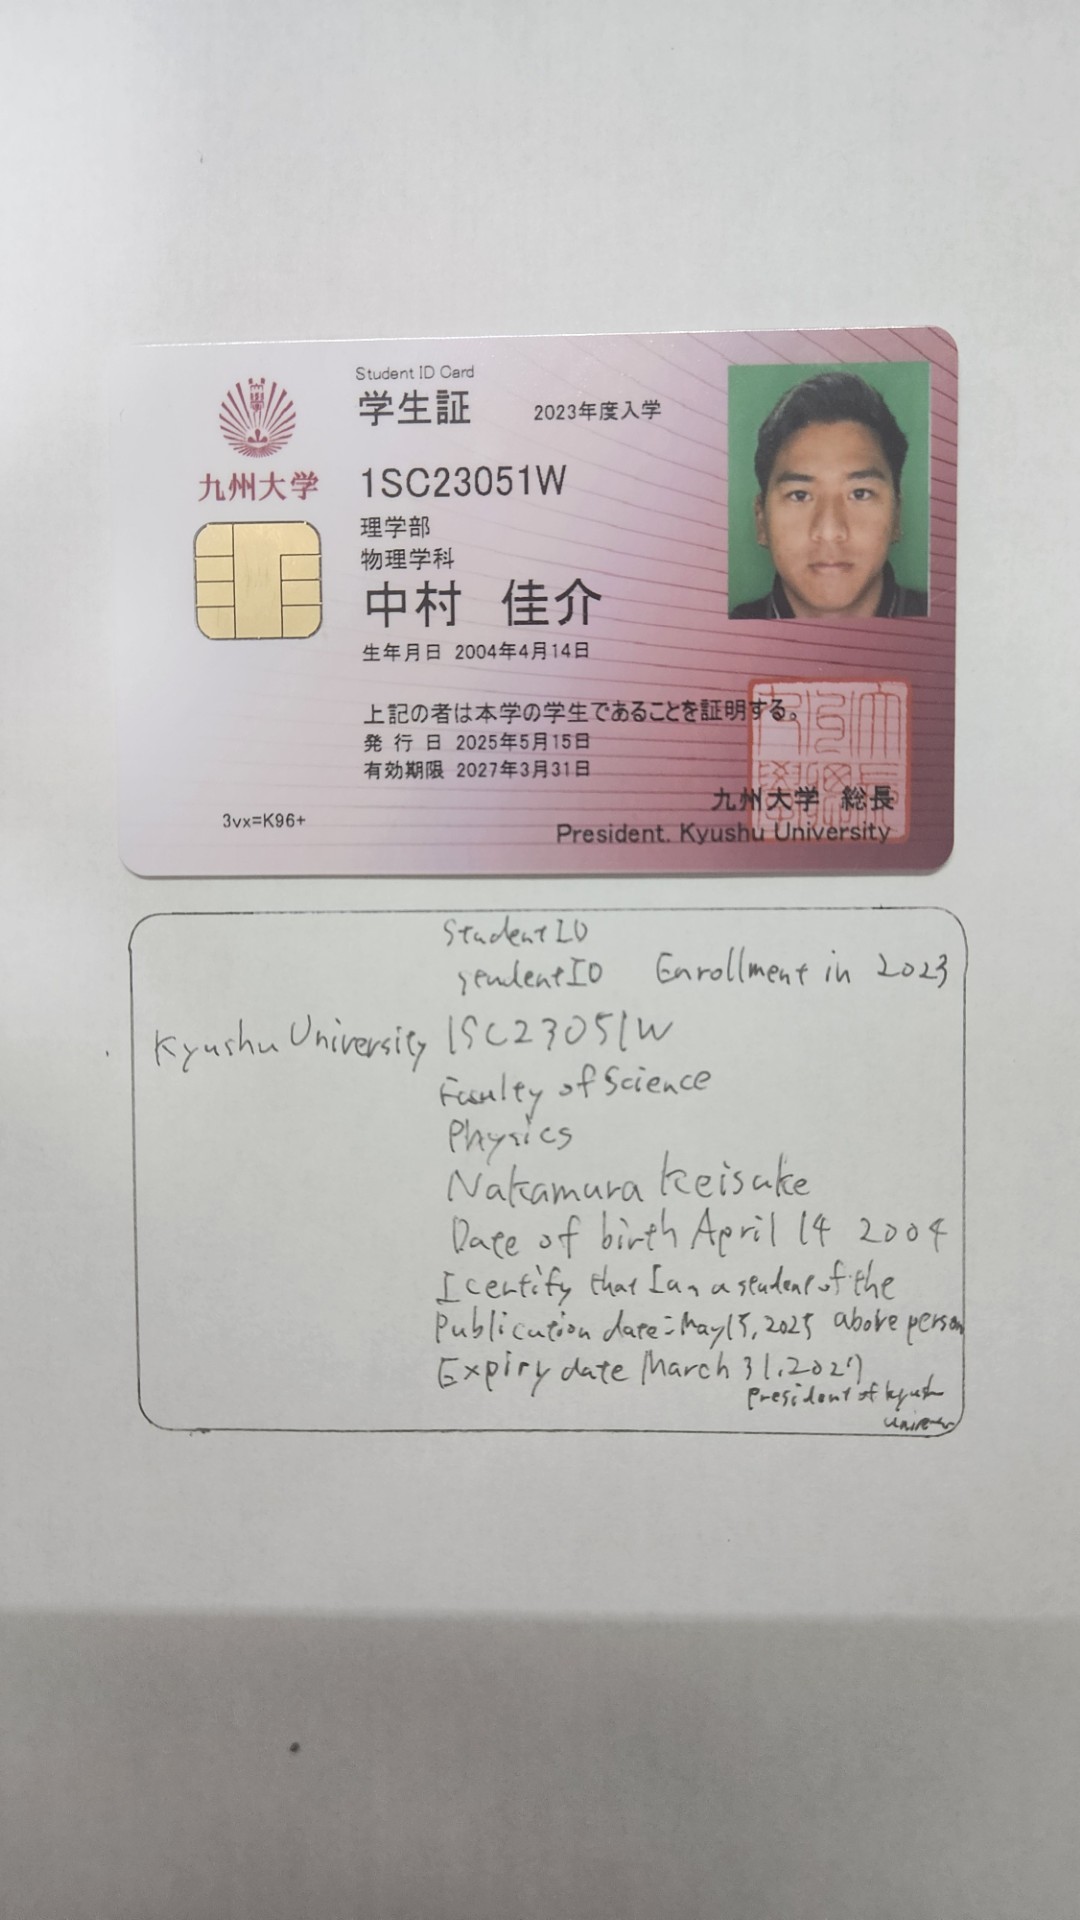 Student ID Card
学生証 2023年度入学
九州大学
1SC23051W
理学部
物理学科
中村 佳介
生年月日 2004年4月14日
上記の者は本学の学生であることを証明する。
発行日 2025年5月15日
有効期限 2027年3月31日
九州大学 総長
3vx=K96+
President. Kyushu University
Student ID
Student ID Enrollment in 2023
Kyushu University 1SC23051W
Faculty of Science
Physics
Nakamura Keisuke
Date of birth April 14 2004
I certify that I am a student of the
Publication date: May 15, 2025 above person
Expiry date March 31, 2027
President of Kyushu